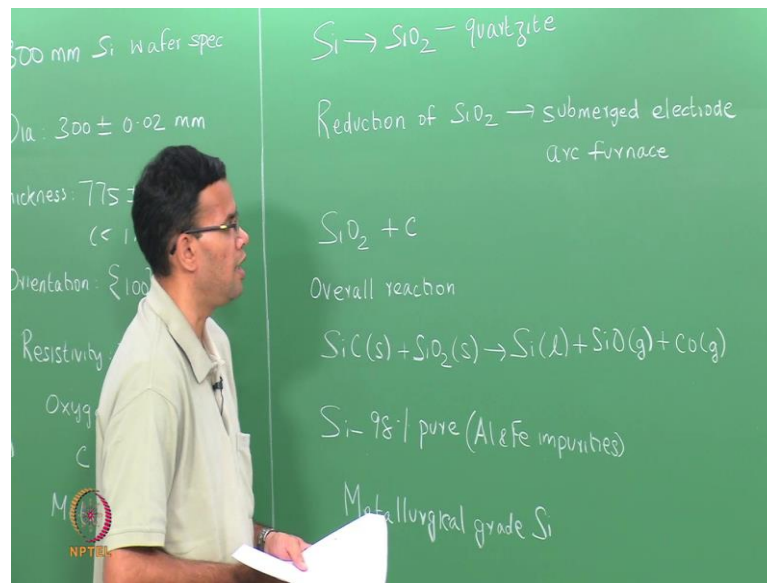 300 mm Si wafer spec
Dia: 300 ± 0.02 mm
ickness: 775 ±
(<
Orientation: {100
Resistivity
Oxyg
C
M
Si → SiO₂ - quartzite
Reduction of SiO₂ → submerged electrode
arc furnace
SiO₂ + C
Overall reaction
SiC(s) + SiO₂(s) → Si(l) + SiO(g) + CO(g)
Si - 98% pure (Al & Fe impurities)
Metallurgical grade Si
NPTEL